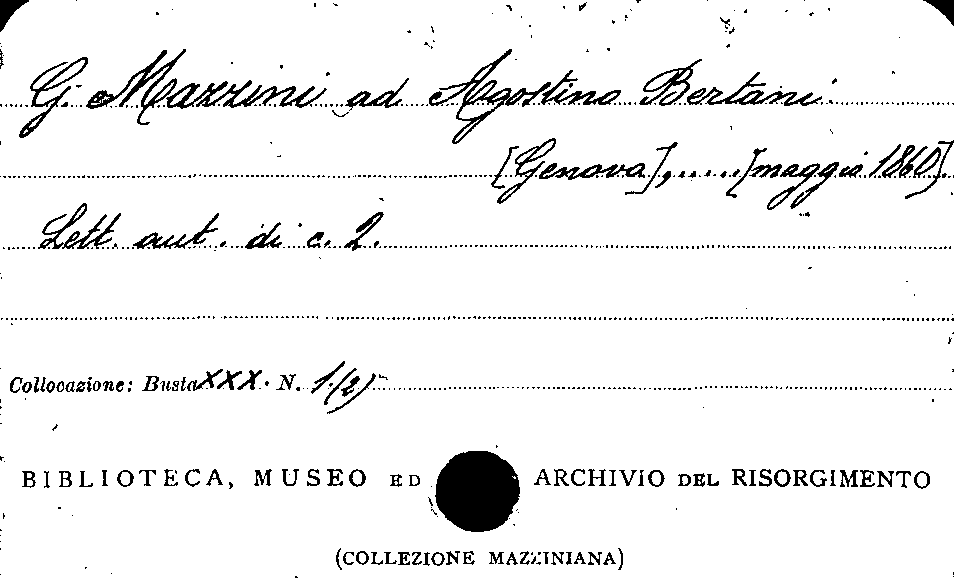 G. Mazzini ad Agostino Bertani.
[Genova],.....[maggio 1860].
Lett. aut. di c. 2.
Collocazione: Busta XXX. N. 1.(2)
BIBLIOTECA, MUSEO ED ARCHIVIO DEL RISORGIMENTO
(COLLEZIONE MAZZINIANA)